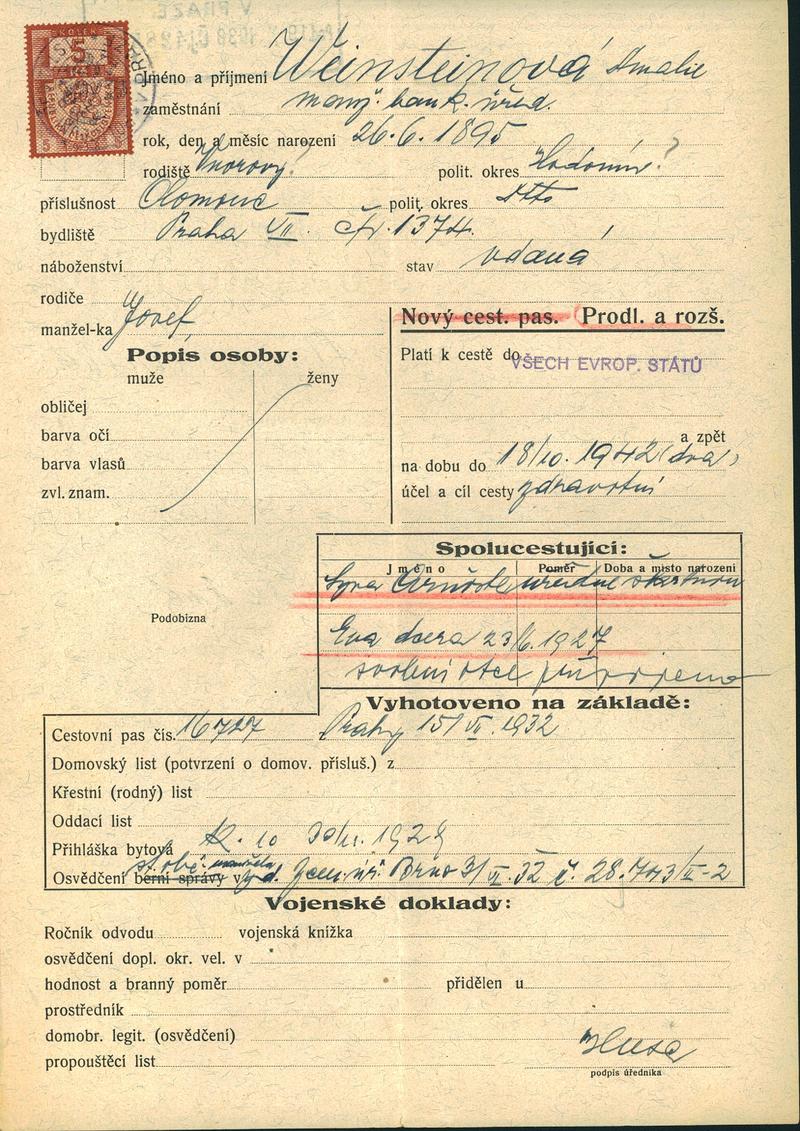 V PRAZE
KOLEK
5
Jméno a příjmení Weinsteinová Amalie
zaměstnání manž. bank. úřed.
rok, den a měsíc narození 26.6. 1895
rodiště Vnorovy! polit. okres Hodonín?
příslušnost Olomouc polit. okres dtto
bydliště Praha VII. čp. 1374.
náboženství stav vdaná
rodiče
manžel-ka Josef,
Nový cest. pas. Prodl. a rozš.
Popis osoby:
muže ženy
Platí k cestě do VŠECH EVROP. STÁTŮ
obličej
barva očí
barva vlasů
zvl. znam.
a zpět
na dobu do 18/10. 1942 (dva)
účel a cíl cesty zdravotní
Spolucestující:
Jméno Poměr Doba a místo narození
úředně škrtnuto
Eva dcera 23/6. 1927
svolení otce připojeno
Podobizna
Vyhotoveno na základě:
Cestovní pas čís. 16727 Prahy 15/VI. 1932
Domovský list (potvrzení o domov. přísluš.) z
Křestní (rodný) list
Oddací list
Přihláška bytová
Osvědčení berní správy v st. obč. manžela zem. úř. Brno 3/VI. 32 č. 28.743/II-2
Vojenské doklady:
Ročník odvodu vojenská knížka
osvědčení dopl. okr. vel. v
hodnost a branný poměr přidělen u
prostředník
domobr. legit. (osvědčení)
propouštěcí list
podpis úředníka